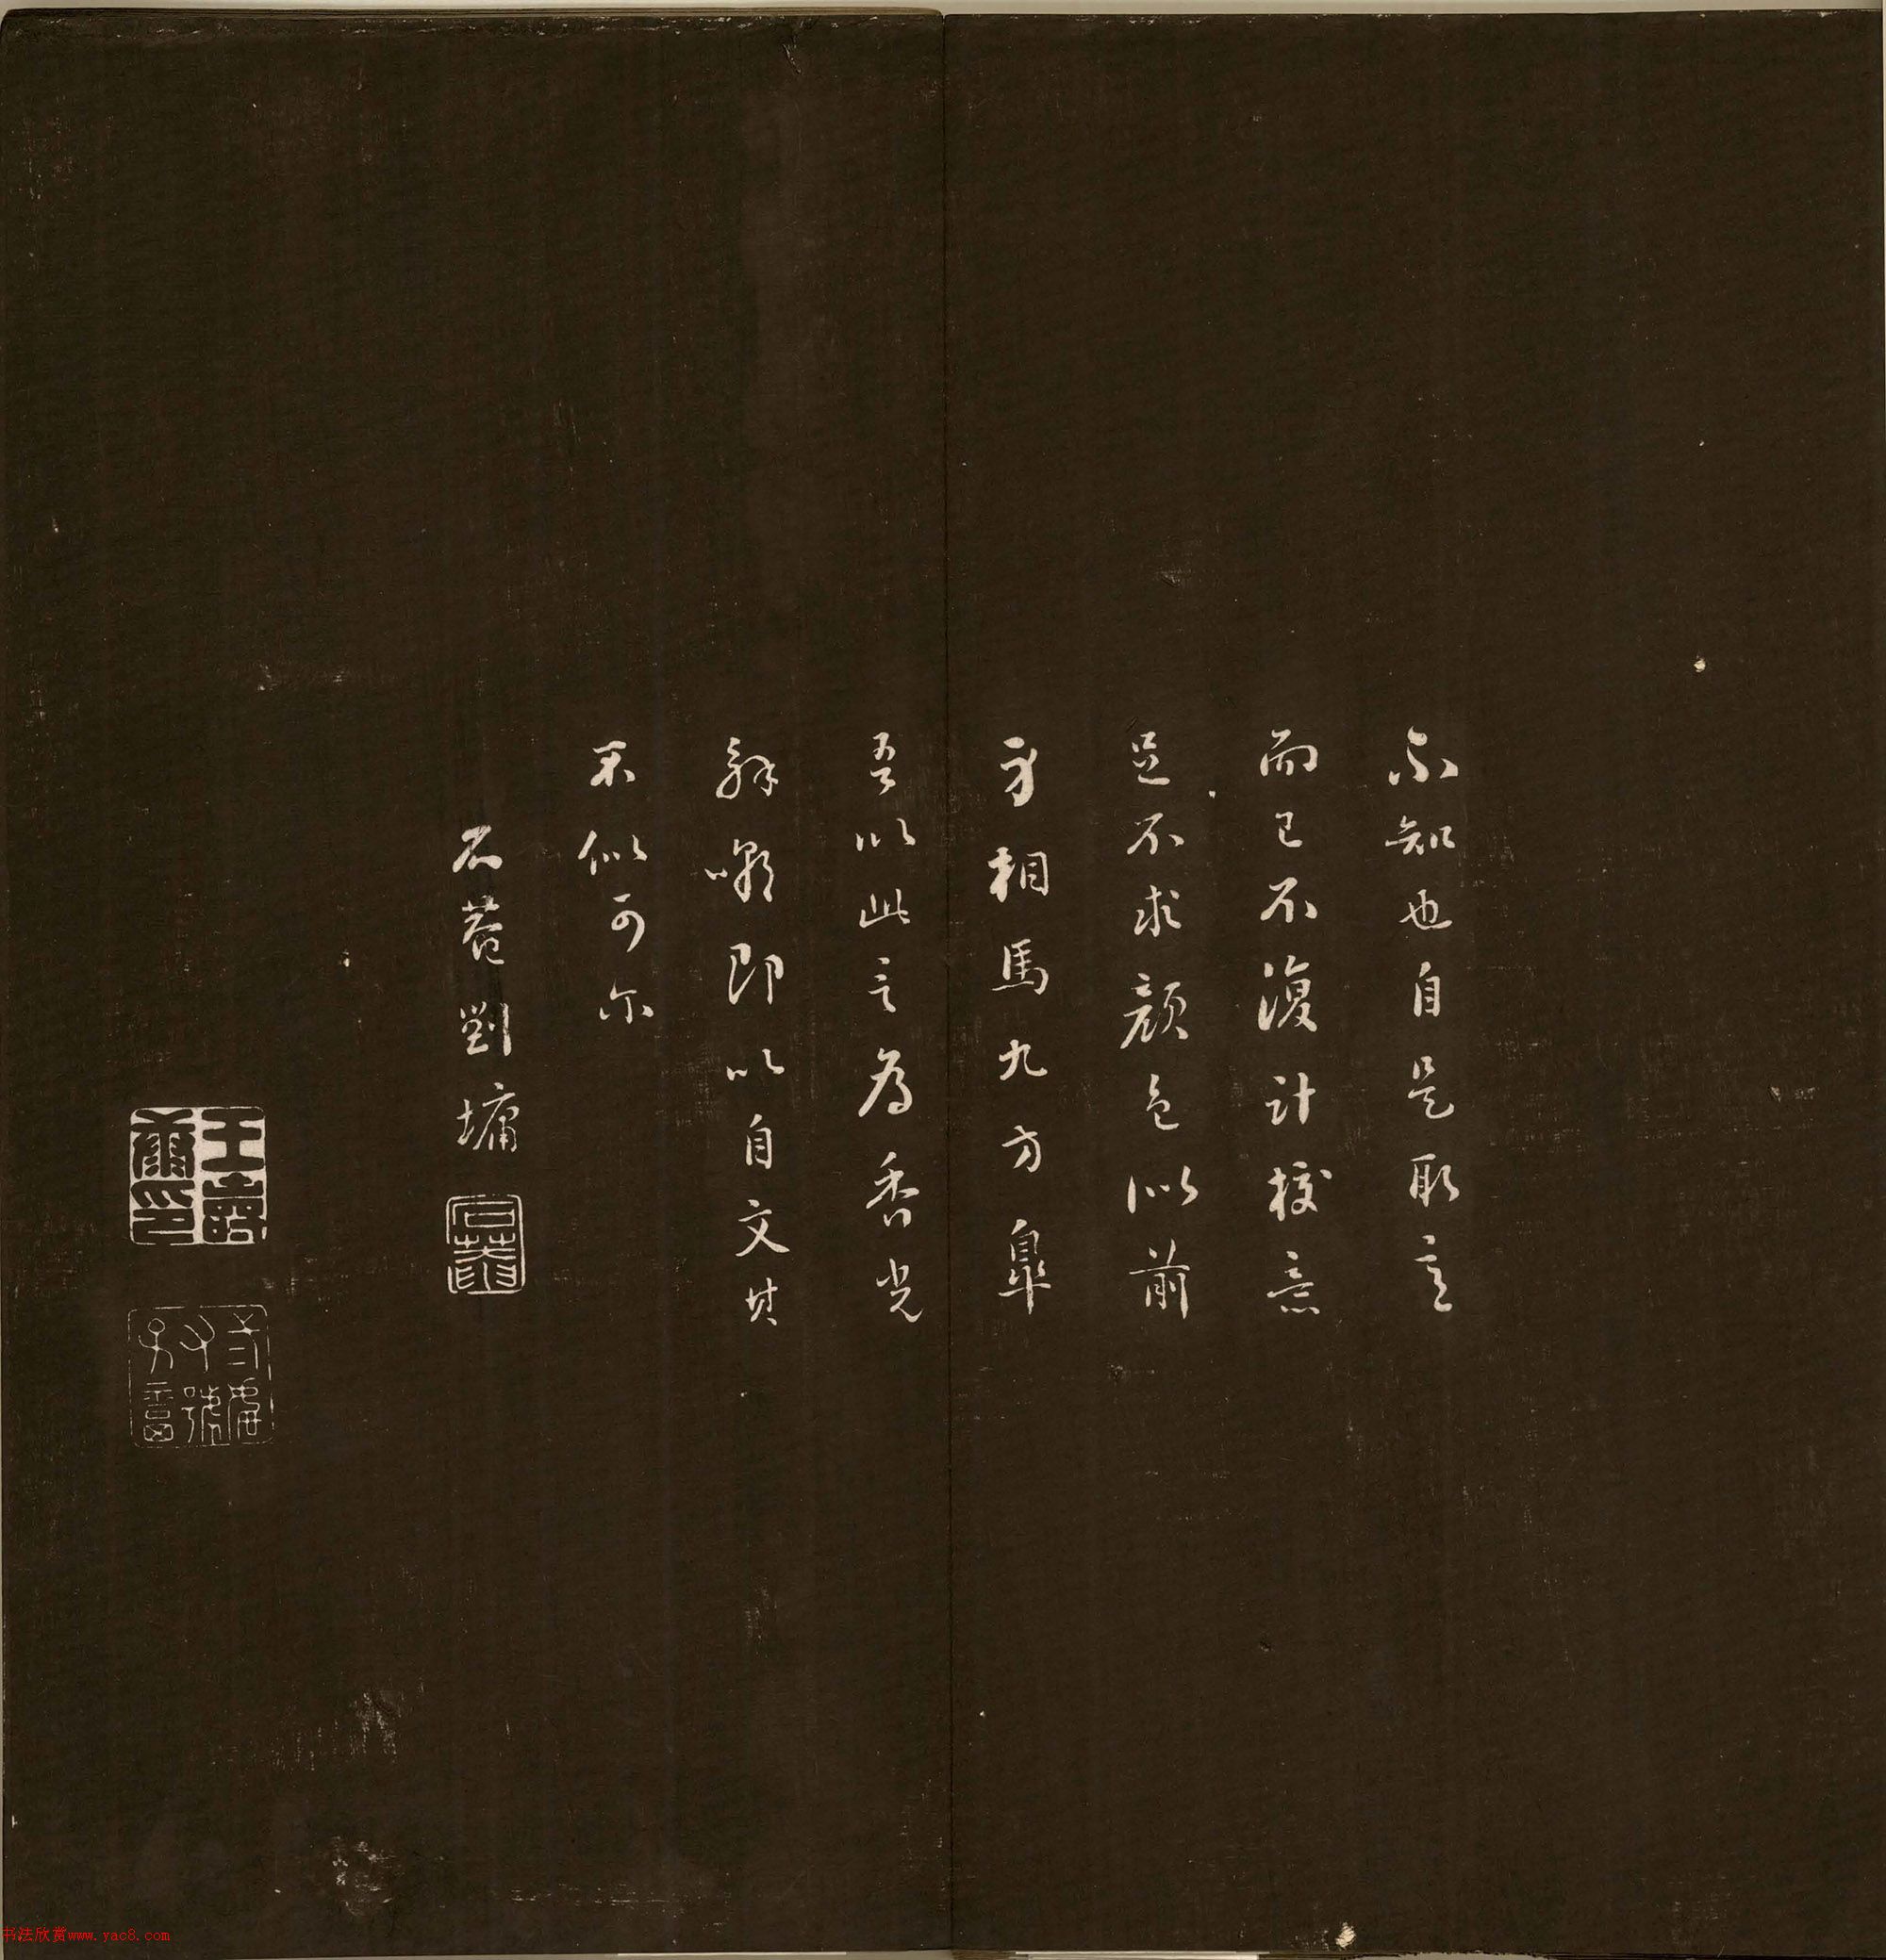 亦知也自是取
而已不復計校意
足不求顏色似前
身相馬九方皋
吾以此言為香光
解嘲即以自文其
不似可尔
石菴劉墉
石菴
书法欣赏www.yac8.com